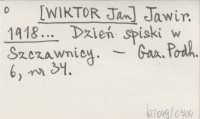 [WIKTOR Jan] Jawir.
1918... Dzień spiski w
Szczawnicy. — Gaz. Podh.
6, nr 34.